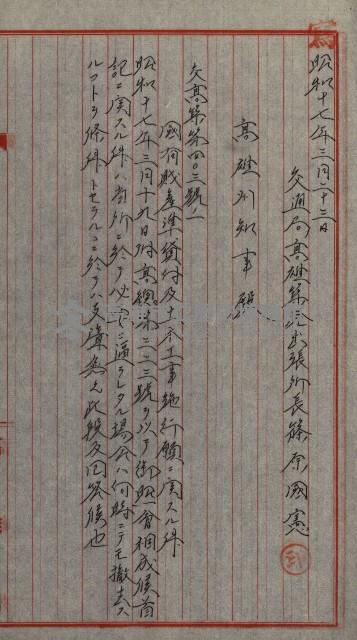 寫
昭和十七年三月二十三日
交通局高雄築港出張所長篠原國憲
高雄州知事殿
交高築第四〇三號ノ
國有財產準貸付及土木工事施行願ニ関スル件
昭和十七年三月十九日附高 第二〇三號ヲ以テ御照會相成候首
記ニ関スル件ハ当所ニ於テ必要ニ逼ラレタル場合ハ何時ニテモ撤去ス
ルコトヲ條件トセラルニ於テハ支障無之此段及回答候也